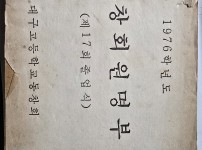 1976학년도
창회원명부
(제17회졸업식)
대구고등학교동창회